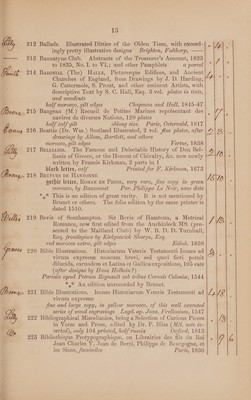 15
212 Ballads. Illustrated Ditties of the Olden Time, with exceed-
ingly pretty illustrative designs Brighton, Folthorp,
213 Bannatyne Club. Abstracts of the Treasurer's Account, 1823
to 1835, No. 1 to VI.; and other Pamphlets a parcel
214 Baronial (The) Halls, Picturesque Edifices, and Ancient
Churches of England, from Drawings by J. D. Harding,
G. Cattermole, S. Prout, and other eminent Artists, with
descriptive Text by S. C. Hall, Esq. 3 vol. plates in tints,
and woodcuts
half morocco, gilt edges Chapman and Hall, 1845-47
215 Baugean (M.) Recueil de Petites Marines représentant des
navires de diverses Nations, 120 plates
half calf gilt oblong size Paris, Ostervald, 1817
216 Beattie (Dr. Wm.) Scotland Illustrated, 2 vol. fine plates, after
drawings by Allom, Bartlett, and others
morocco, gilt edges Virtue, 1838
217 Bellianis. The Famous and Delectable History of Don Bel-
lianis of Greece, or the Honour of Chivalry, &c. now newly
written by Francis Kirkman, 3 parts in 1
black letter, calf Printed for F. Kirkman, 1673
218 Beufves de Hantonne
gothic letter, Roman en Prose, very rare, fine copy in green
morocco, by Bauzonnet Par. Philippe Le Noir, sans date
*** This is an edition of great rarity. It is not mentioned by
Brunet or others. The folio edition by the same printer is
dated 1510.
219 Bevis of Southampton. Sir Bevis of Hamtoun, a Metrical
Romance, now first edited from the Auchinleck MS (pre-
sented to the Maitland Club) by W. B. D. D. Turnbull,
Esq. frontispiece by Kirkpatrick Sharpe, Esq.
red morocco extra, gilt edges Edinb. 1838
220 Bible Illustrations. Historiarum Veteris Testamenti Icones ad
vivum expressæ unacum brevi, sed quoad fieri potuit
dilucida, earundem et Latina et Gallica expositione, 105 cuts
(after designs by Hans Holbein?)
Parisiis apud Petrum Regnault sub tribus Coronis Coloniæ, 1544
*** An edition unrecorded by Brunet.
221 Bible Illustrations. Icones Historiarum Veteris Testamenti ad
vivum expressæ
fine and large copy, in yellow morocco, of this well executed
series of wood engravings Lugd. ap. Joan. Frellonium, 1547
222 Bibliographical Miscellanies, being a Selection of Curious Pieces
in Verse and Prose, edited by Dr. P. Bliss (MS. note in-
serted), only 104 printed, half russia Oxford, 1813
223 Bibliothèque Protypographique, ou Librairies des fils du Roi
Jean Charles V, Jean de Berri, Philippe de Bourgogne, et
les Siens, facsimiles Paris, 1830